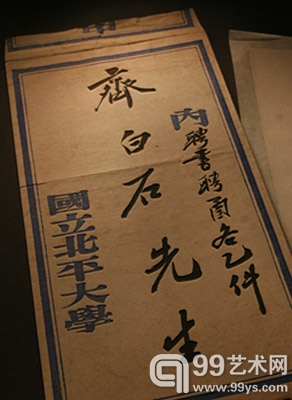 內聘書聘函各乙件
齊白石先生
國立北平大學
99艺术网
www.99ys.com